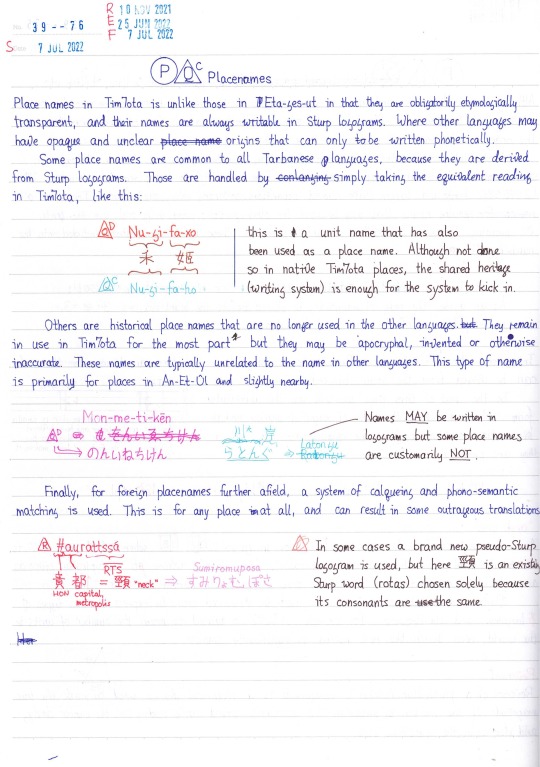 39--76
R 10 NOV 2021
E 25 JUN 2022
F 7 JUL 2022
S 7 JUL 2022
P C Placenames
Place names in Tim7ota is unlike those in Eta-ses-ut in that they are obligatorily etymologically
transparent, and their names are always writable in Sturp logograms. Where other languages may
have opaque and unclear place name origins that can only to be written phonetically.
Some place names are common to all Tarbanese languages, because they are derived
from Sturp logograms. Those are handled by conlanging simply taking the equivalent reading
in Tim7ota, like this:
Nu-si-fa-xo
禾 姫
Nu-si-fa-ho
this is a unit name that has also
been used as a place name. Although not done
so in native Tim7ota places, the shared heritage
(writing system) is enough for the system to kick in.
Others are historical place names that are no longer used in the other languages. but They remain
in use in Tim7ota for the most part but they may be apocryphal, invented or otherwise
inaccurate. These names are typically unrelated to the name in other languages. This type of name
is primarily for places in An-Et-Ol and slightly nearby.
Mon-me-ti-kēn
のんいねちけん
岸
らとんぐ ⇒ Latongu
Names MAY be written in
logograms but some place names
are customarily NOT.
Finally, for foreign placenames further afield, a system of calqueing and phono-semantic
matching is used. This is for any place in at all, and can result in some outrageous translations
R #aurattssá
RTS
貴 都 = 頸 "neck" ⇒ すみりょむぽさ
Sumiromuposa
HON capital, metropolis
In some cases a brand new pseudo-Sturp
logogram is used, but here 頸 is an existing
Sturp word (rotas) chosen solely because
its consonants are use the same.